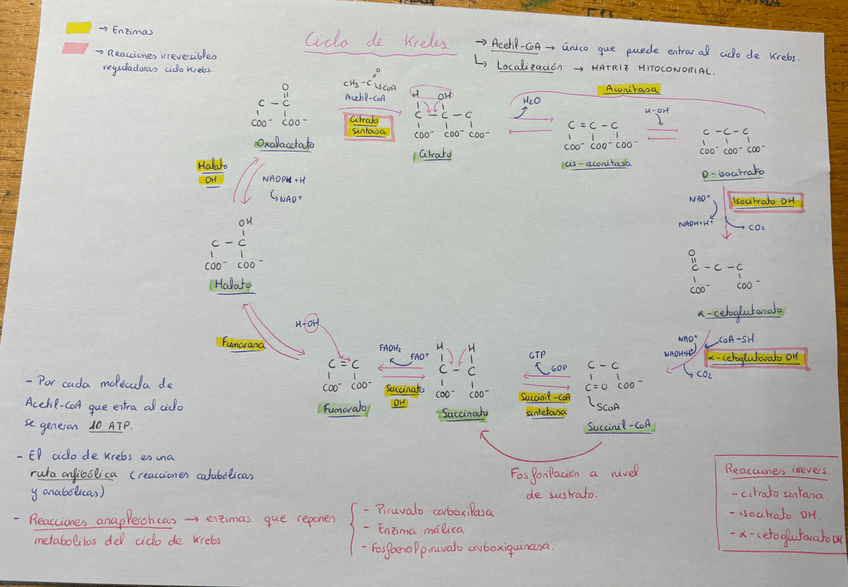 → Enzimas
→ Reacciones irreversibles
reguladoras ciclo Krebs.
Ciclo de Krebs
→ Acetil-CoA → único que puede entrar al ciclo de Krebs.
↳ Localización → MATRIZ MITOCONDRIAL.
O
C - C
COO⁻ COO⁻
Oxalacetato
O
CH₃ - C
SCoA
Acetil-CoA
Citrato
sintasa
H OH
C - C - C
COO⁻ COO⁻ COO⁻
Citrato
H₂O
Aconitasa
C = C - C
COO⁻ COO⁻ COO⁻
cis-aconitasa
H-OH
C - C - C
COO⁻ COO⁻ COO⁻
D-isocitrato
NAD⁺
Isocitrato DH
NADH+H⁺
CO₂
O
C - C - C
COO⁻ COO⁻
α-cetoglutarato
NAD⁺
CoA-SH
α-cetoglutarato DH
CO₂
C - C
C=O COO⁻
SCoA
Succinil-CoA
GTP
GDP
Succinil-CoA
sintetasa
H H
C - C
COO⁻ COO⁻
Succinato
FADH₂
FAD⁺
Succinato
DH
H-OH
C = C
COO⁻ COO⁻
Fumarato
Fumarasa
OH
C - C
COO⁻ COO⁻
Malato
Malato
DH
NAD⁺
Fosforilación a nivel
de sustrato.
- Por cada molécula de
Acetil-CoA que entra al ciclo
se generan 10 ATP.
- El ciclo de Krebs es una
ruta anfibólica (reacciones catabólicas
y anabólicas)
- Reacciones anapleróticas → enzimas que reponen
metabolitos del ciclo de Krebs
- Piruvato carboxilasa
- Enzima málica
- Fosfoenolpiruvato carboxiquinasa.
Reacciones irrevers.
- citrato sintasa.
- isocitrato DH.
- α-cetoglutarato DH